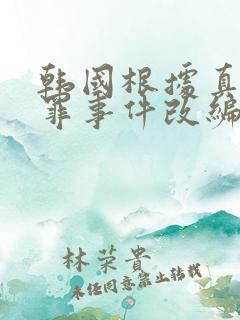 韩國根據真
罪事件改編
林荣貴
未经同意禁止转载